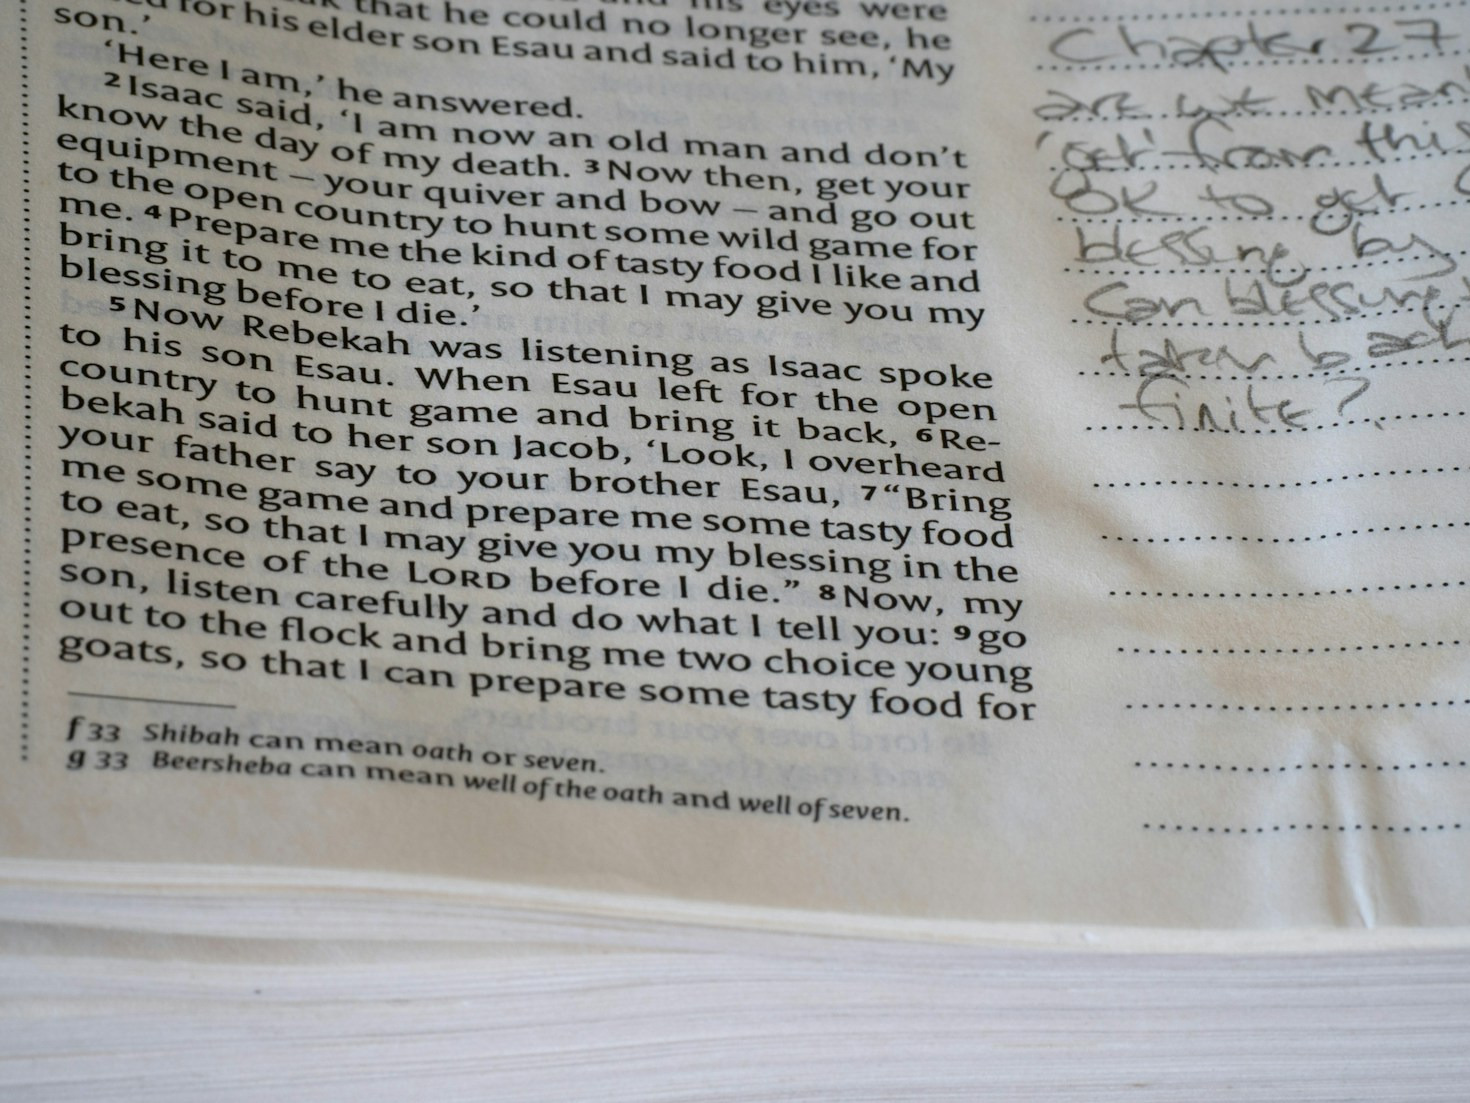 his eyes were
that he could no longer see, he
for his elder son Esau and said to him, ‘My
son.’
‘Here I am,’ he answered.
2 Isaac said, ‘I am now an old man and don’t
know the day of my death. 3 Now then, get your
equipment – your quiver and bow – and go out
to the open country to hunt some wild game for
me. 4 Prepare me the kind of tasty food I like and
bring it to me to eat, so that I may give you my
blessing before I die.’
5 Now Rebekah was listening as Isaac spoke
to his son Esau. When Esau left for the open
country to hunt game and bring it back, 6 Re-
bekah said to her son Jacob, ‘Look, I overheard
your father say to your brother Esau, 7 “Bring
me some game and prepare me some tasty food
to eat, so that I may give you my blessing in the
presence of the LORD before I die.” 8 Now, my
son, listen carefully and do what I tell you: 9 go
out to the flock and bring me two choice young
goats, so that I can prepare some tasty food for
f 33 Shibah can mean oath or seven.
g 33 Beersheba can mean well of the oath and well of seven.
Chapter 27
are we mean
'get' from this
OK to get
blessing by
Can blessing
taken back
finite?